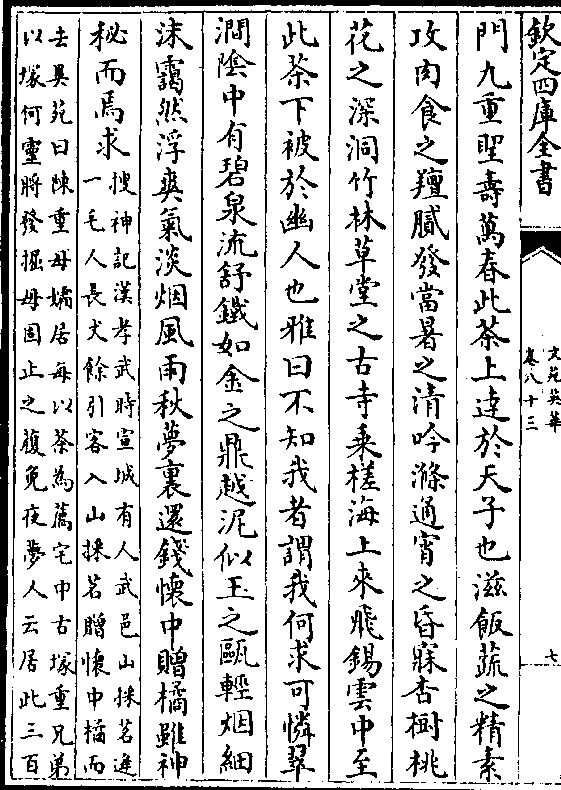 欽定四庫全書
文苑英華
卷八十三
七
門九重聖壽萬春此茶上達於天子也滋飯蔬之精素
攻肉食之羶膩發當暑之清吟滌通宵之昏寐杏樹桃
花之深洞竹林草堂之古寺乗槎海上來飛錫雲中至
此茶下被於幽人也雅曰不知我者謂我何求可憐翠
澗陰中有碧泉流舒鐵如金之鼎越泥似玉之甌輕烟細
沫靄然浮爽氣淡烟風雨秋夢裏還錢懷中贈橘雖神
秘而焉求
搜神記漢孝武時宣城有人武邑山採茗逢
一毛人長丈餘引客入山採茗贈懷中橘而
去異苑曰陳重母孀居每以茶為薦宅中古塚重兄弟
以塚何靈將發掘母固止之獲免夜夢人云居此三百